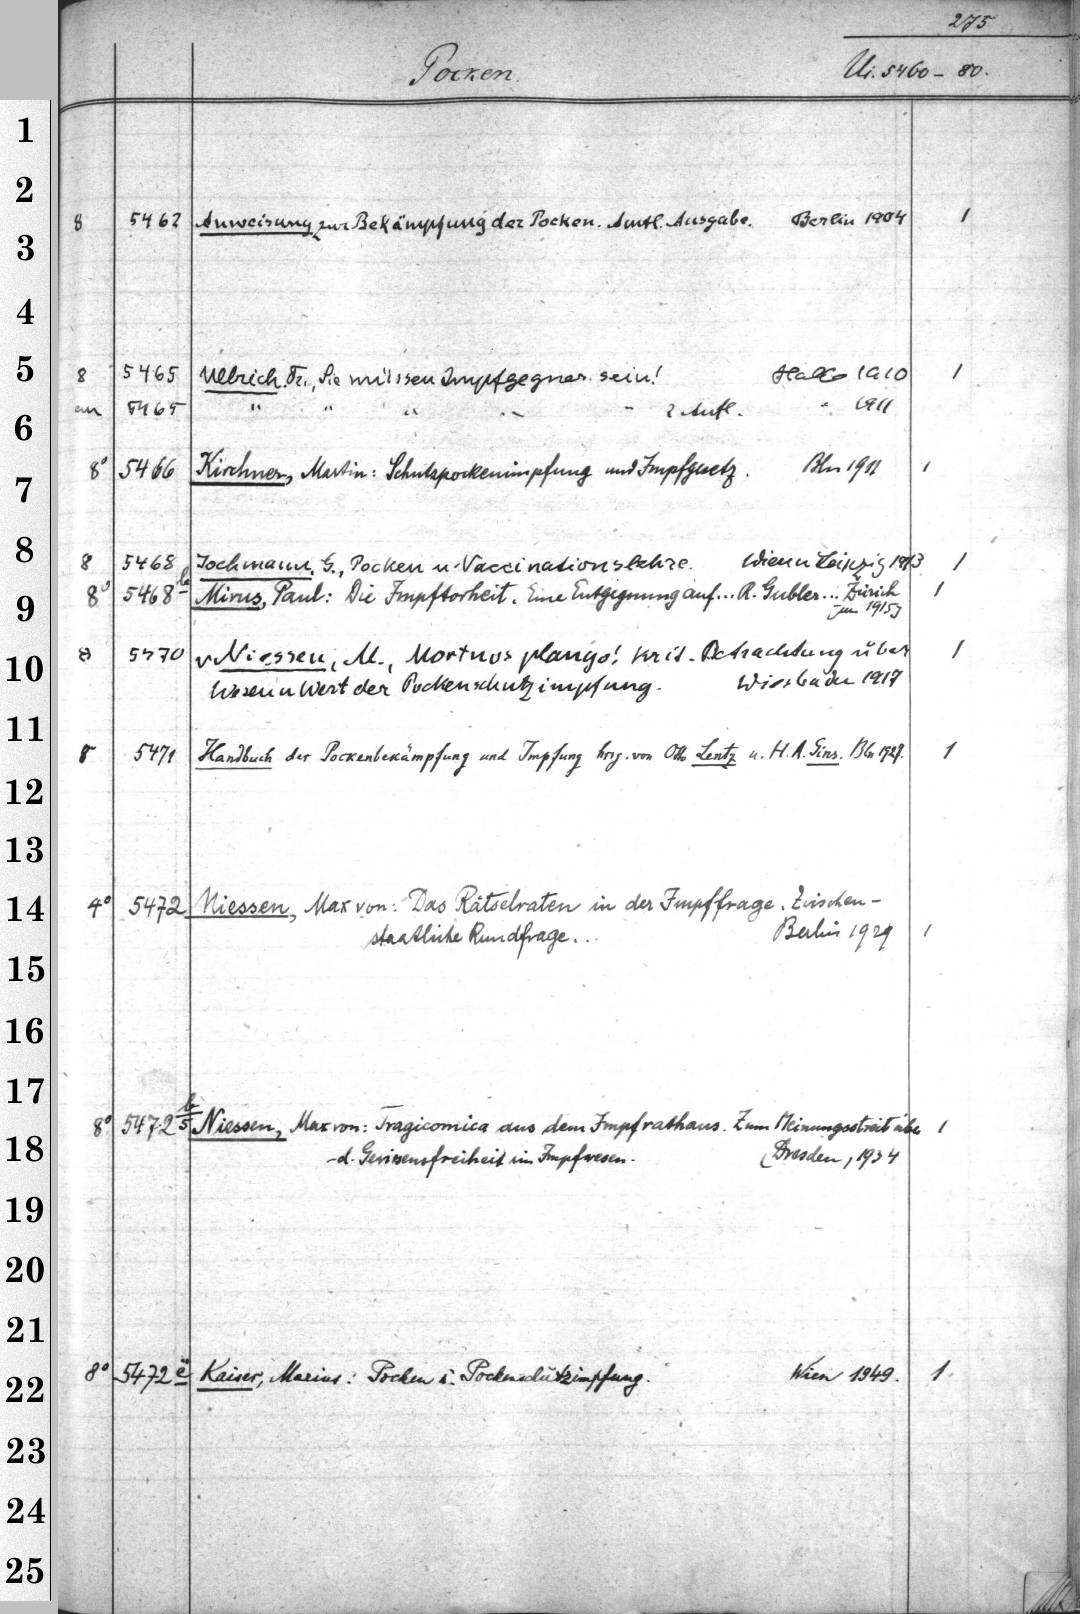 275
Pocken. Ui. 5460-80.
1
2
8 5462 Anweisung zur Bekämpfung der Pocken. Amtl. Ausgabe. Berlin 1904 1
3
4
5 8 5465 Ullrich, Fr., Sie müssen Impfgegner sein! Halle 1910 1
an 5465 " " " " " 2 Aufl. " 1911
6
8° 5466 Kirchner, Martin: Schutzpockenimpfung und Impfgesetz. Bln 1911 1
7
8 8 5468 Jochmann, G., Pocken u. Vaccinationslehre. Wien u Leipzig 1913 1
9 8° 5468 b Mirus, Paul: Die Impftorheit. Eine Entgegnung auf... R. Gubler... Zürich 1
1915}
10 8 5470 v Niessen, M., Mortuos plango! Krit. Betrachtung über 1
Wesen u Wert der Pockenschutzimpfung. Wiesbaden 1917
11
8 5471 Handbuch der Pockenbekämpfung und Impfung hrsg. von Otto Lentz u. H. A. Gins. Bln 1927. 1
12
13
14 4° 5472 Niessen, Max von: Das Rätselraten in der Impffrage. Zwischen-
staatliche Rundfrage... Berlin 1929 1
15
16
17
8° 5472 b/5 Niessen, Max von: Tragicomica aus dem Impfrathaus. Zum Meinungsstreit über 1
18 d. Gewissensfreiheit im Impfwesen. Dresden, 1934
19
20
21
22 8° 5472 ë Kaiser, Marius: Pocken u. Pockenschutzimpfung. Wien 1949. 1
23
24
25